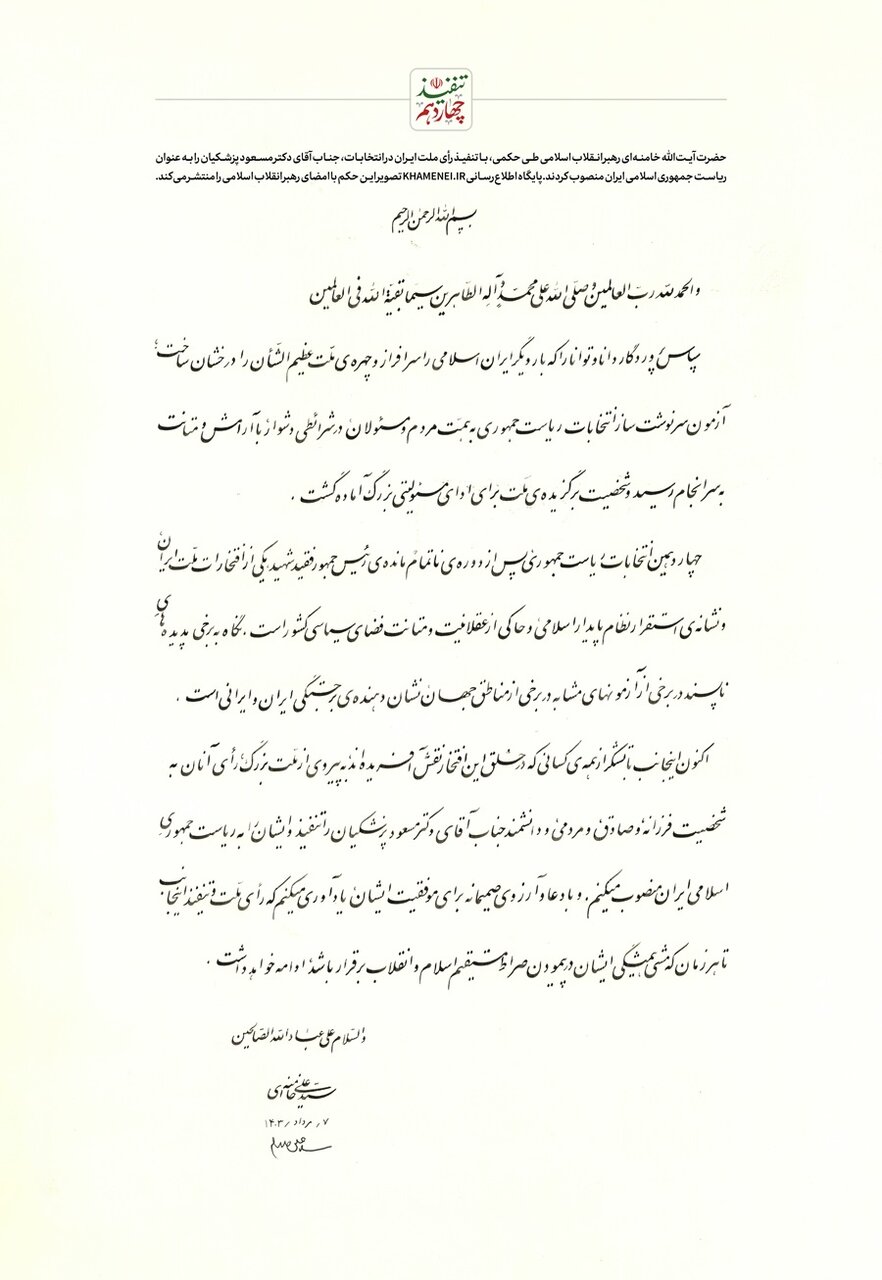 تنفیذ
چهاردهم
حضرت آیت‌الله خامنه‌ای رهبر انقلاب اسلامی طی حکمی، با تنفیذ رأی ملت ایران در انتخابات، جناب آقای دکتر مسعود پزشکیان را به عنوان
ریاست جمهوری اسلامی ایران منصوب کردند. پایگاه اطلاع‌رسانی KHAMENEI.IR تصویر این حکم با امضای رهبر انقلاب اسلامی را منتشر می‌کند.
بسم الله الرحمن الرحیم
والحمد لله رب العالمین و صلی الله علی محمد و آله الطاهرین سیما بقیة الله فی العالمین
سپاس پروردگار دانا و توانا را که بار دیگر ایران اسلامی را سرافراز و چهره‌ی ملت عظیم الشأن را درخشان ساخت؛
آزمون سرنوشت ساز انتخابات ریاست جمهوری به همت مردم و مسئولان در شرائطی دشوار با آرامش و متانت
به سرانجام رسید و شخصیت برگزیده‌ی ملت برای ادای مسئولیتی بزرگ آماده گشت .
چهاردهمین انتخابات ریاست جمهوری پس از دوره‌ی ناتمام مانده‌ی رئیس جمهور فقید شهید یکی از افتخارات ملت ایران
و نشانه‌ی استقرار نظام پایدار اسلامی و حاکی از عقلانیت و متانت فضای سیاسی کشور است . نگاه به برخی پدیده‌های
ناپسند در برخی از آزمونهای مشابه در برخی از مناطق جهان نشان دهنده‌ی برجستگی ایران و ایرانی است .
اکنون اینجانب با تشکر از همه‌ی کسانی که در خلق این افتخار نقش آفریده‌اند به پیروی از ملت بزرگ، رأی آنان به
شخصیت فرزانه و صادق و مردمی و دانشمند جناب آقای دکتر مسعود پزشکیان را تنفیذ و ایشان را به ریاست جمهوری
اسلامی ایران منصوب میکنم . و با دعا و آرزوی صمیمانه برای موفقیت ایشان یادآوری میکنم که رأی ملت و تنفیذ اینجانب
تا هر زمان که مشی همیشگی ایشان در پیمودن صراط مستقیم اسلام و انقلاب برقرار باشد، ادامه خواهد داشت .
والسلام علی عباد الله الصالحین
سید علی خامنه‌ای
۷ / مرداد / ۱۴۰۳